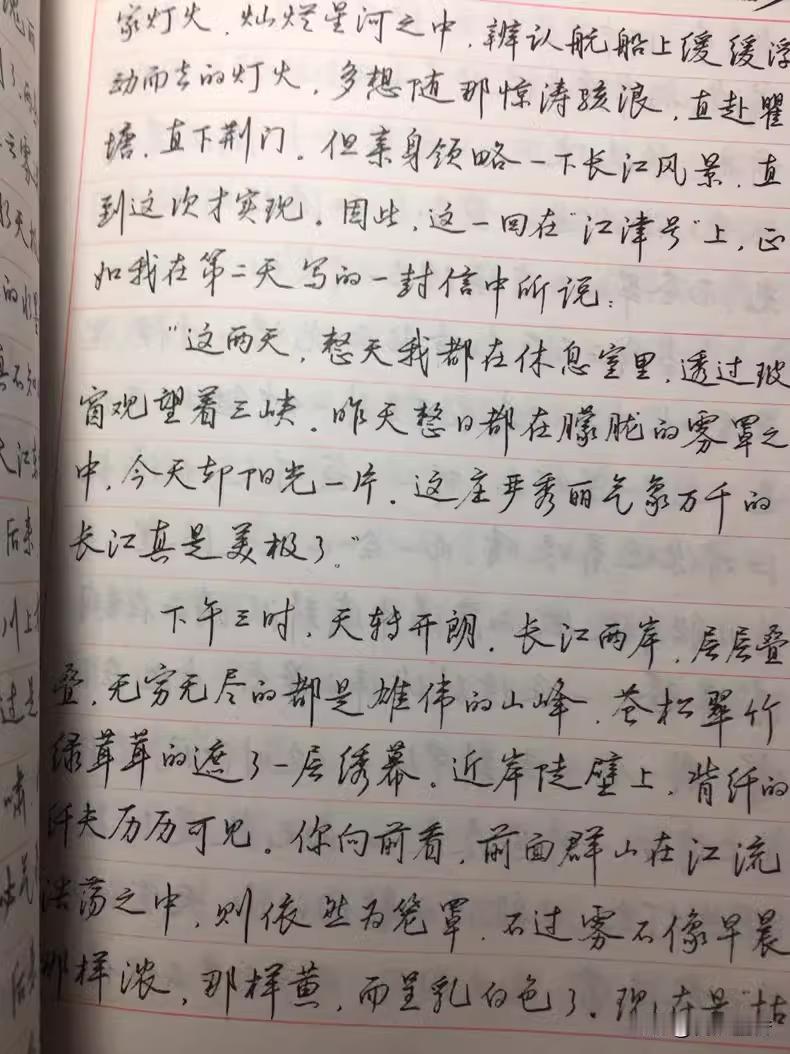 家灯火，灿烂星河之中，辨认航船上缓缓浮
动而去的灯火，多想随那惊涛骇浪，直赴瞿
塘，直下荆门。但亲身领略一下长江风景，直
到这次才实现。因此，这一回在"江津号"上，正
如我在第二天写的一封信中所说：
"这两天，整天我都在休息室里，透过玻
窗观望着三峡。昨天整日都在朦胧的雾罩之
中，今天却阳光一片。这庄严秀丽气象万千的
长江真是美极了。"
下午三时，天转开朗。长江两岸，层层叠
叠，无穷无尽的都是雄伟的山峰，苍松翠竹
绿茸茸的遮了一层绣幕。近岸陡壁上，背纤的
纤夫历历可见。你向前看，前面群山在江流
浩荡之中，则依然为笼罩，不过雾不像早晨
那样浓，那样黄，而呈乳白色了。现在是"枯